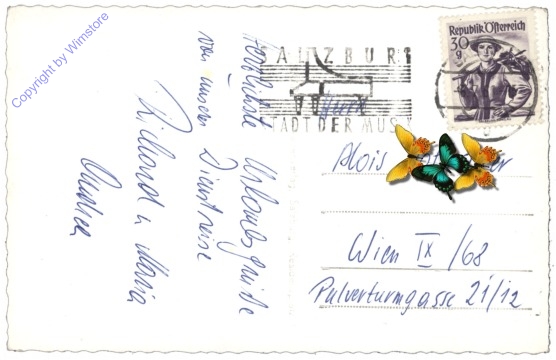 Copyright by Wimstore
SALZBURG
STADT DER MUSIK
Republik Österreich
30 g
Herzlichste Urlaubsgrüße
von unserer Dienstreise
Richard u. Maria
Herrn
Alois
Wien IX/68
Pulverturmgasse 21/12